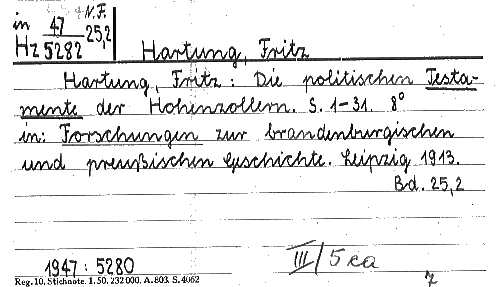 in 47 N.F.
Hz 5282 25,2
Hartung, Fritz
Hartung, Fritz: Die politischen Testa-
mente der Hohenzollern. S. 1-31. 8°
in: Forschungen zur brandenburgischen
und preußischen Geschichte. Leipzig 1913.
Bd. 25,2
1947 : 5280
III/5 ca
7
Reg. 10. Stichnote. 1. 50. 232 000. A. 803. S. 4062